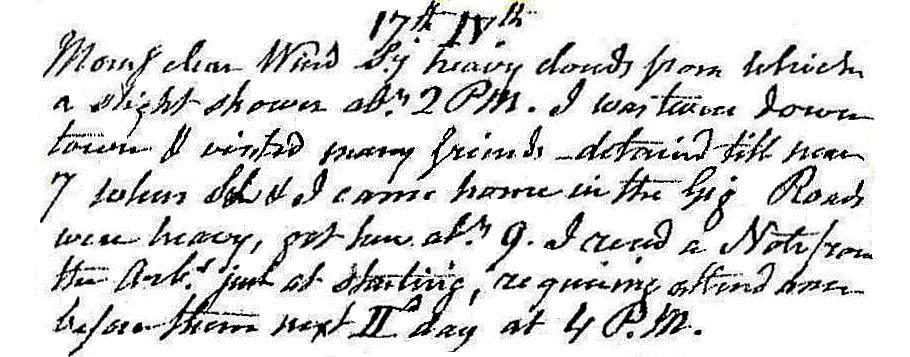 17th IVth
Morng clear Wind Sy heavy clouds from which
a slight shower abt 2 P.M. I was twice down
town & visited many friends - detained till near
7 when & I came home in the Gig Roads
were heavy, got here abt 9. I recd a Note from
the Arbs just at starting, requiring attendance
before them next IId day at 4 P.M.